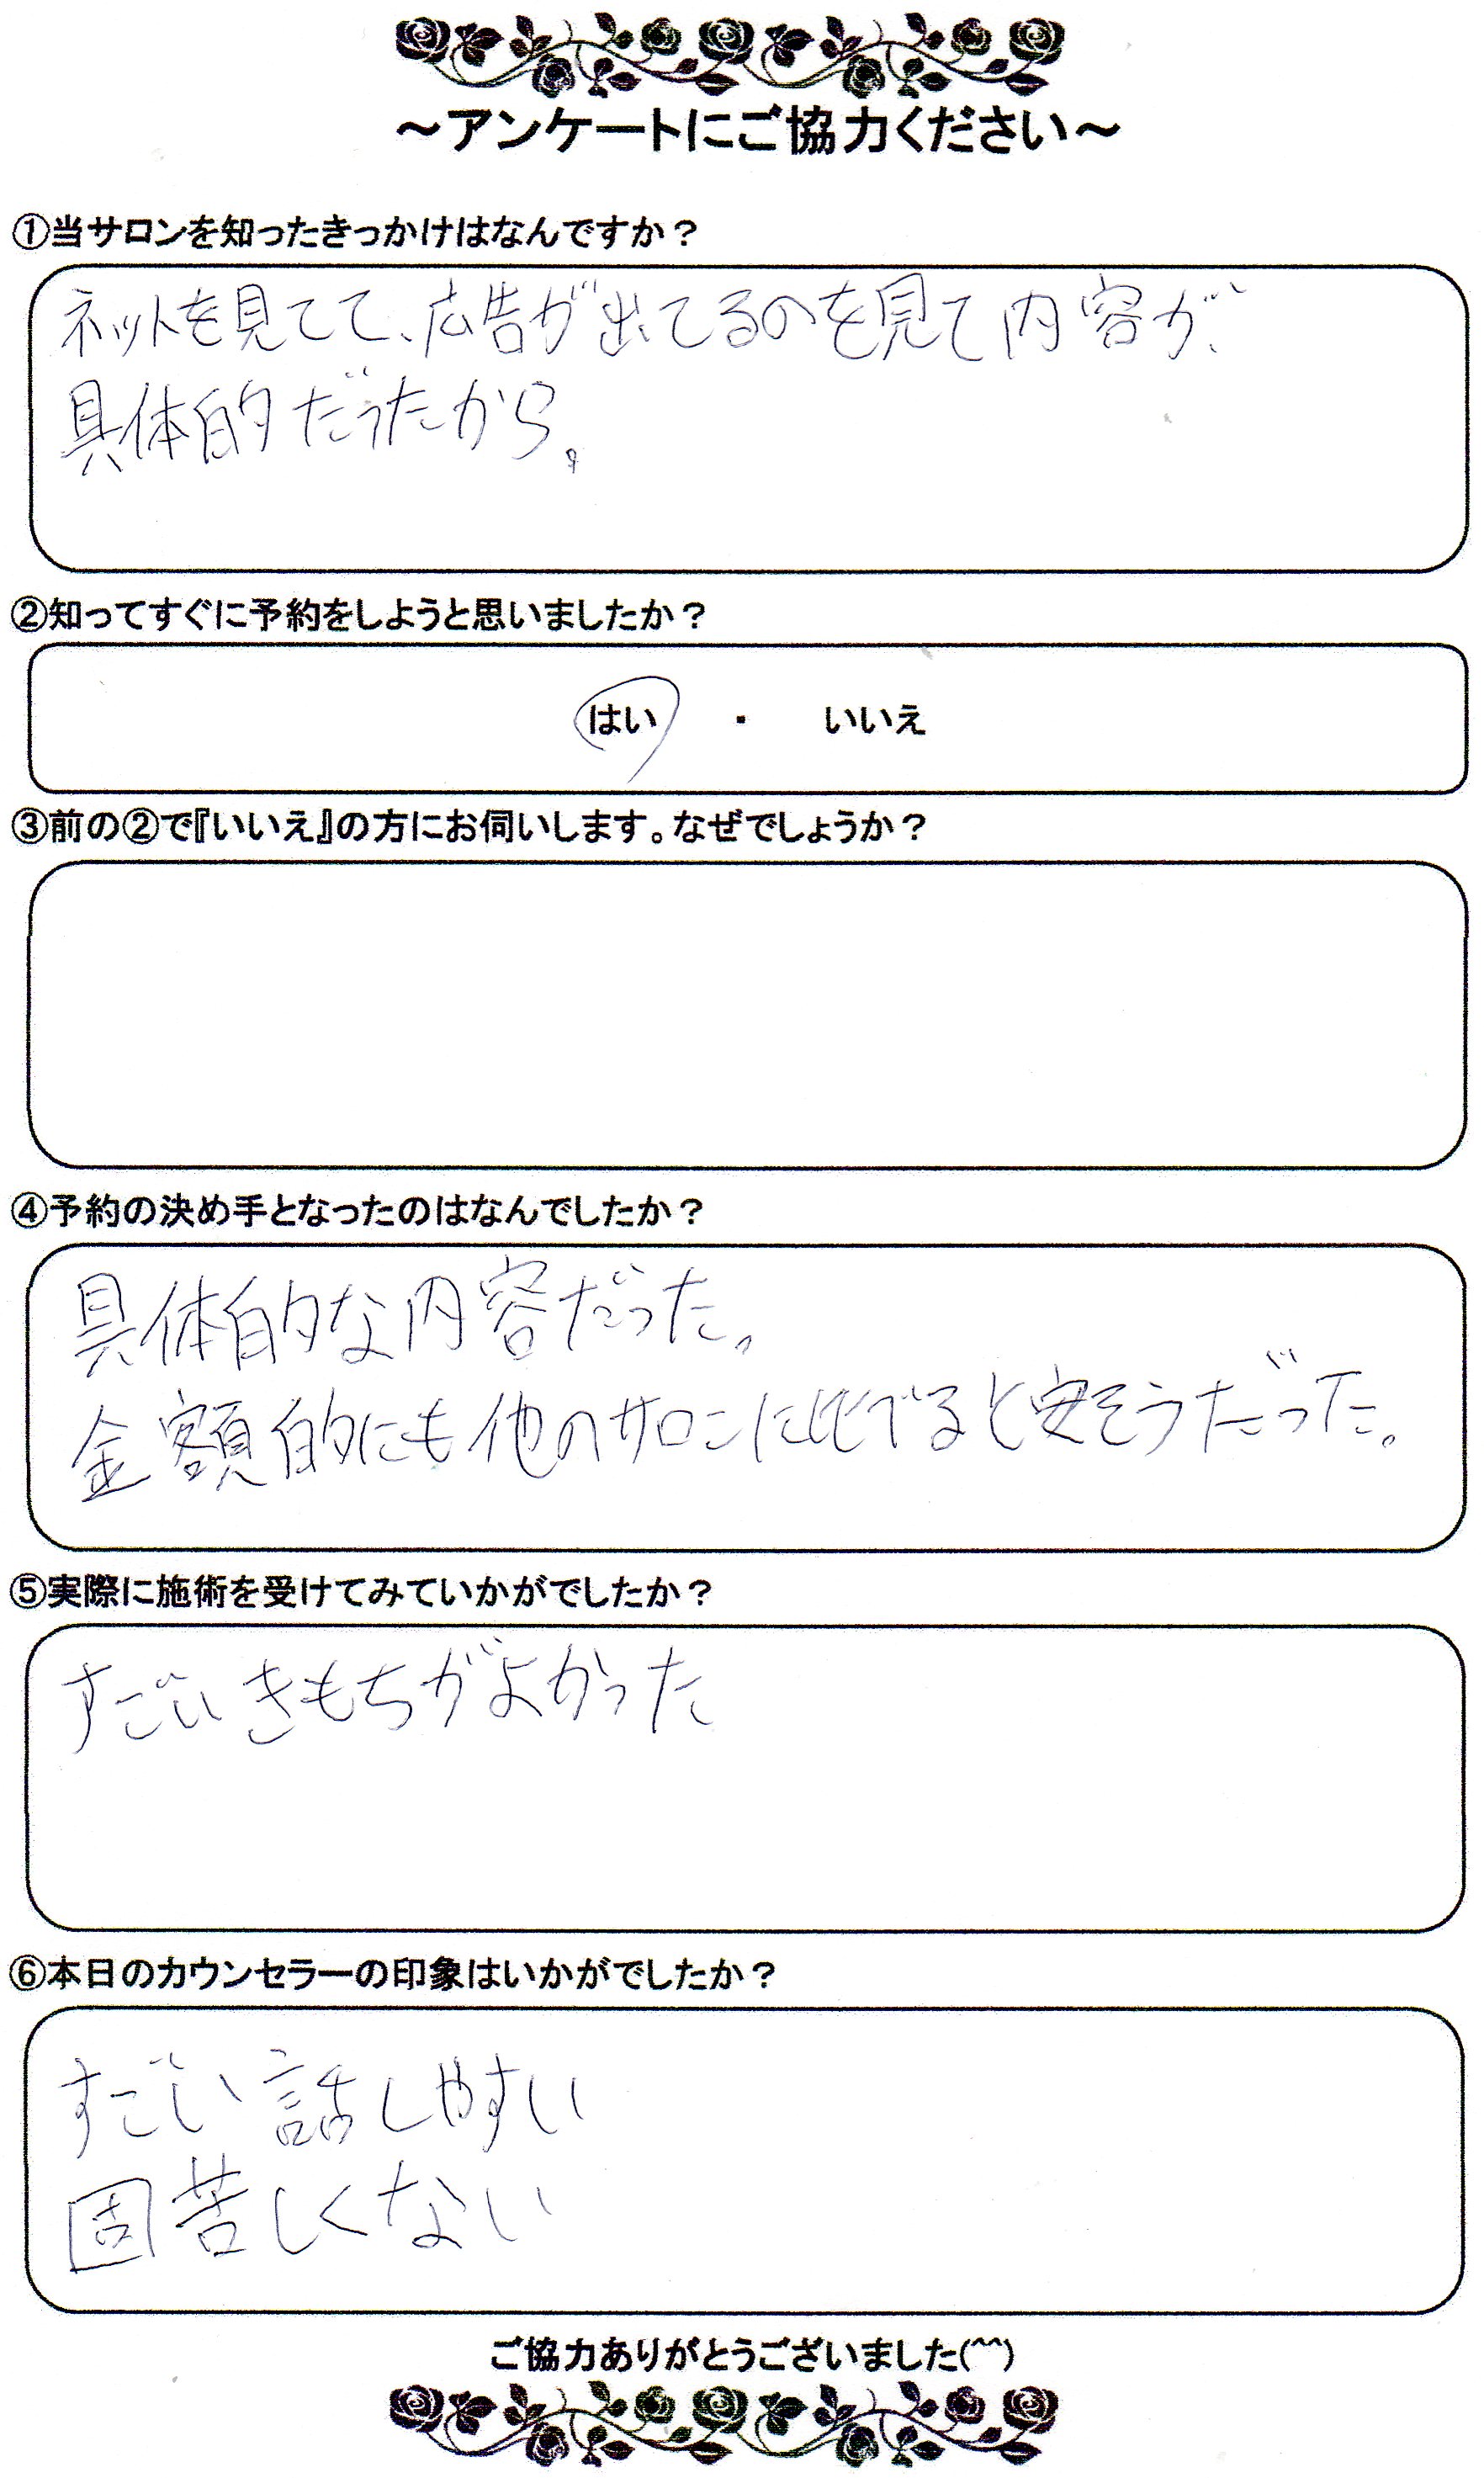 ～アンケートにご協力ください～
①当サロンを知ったきっかけはなんですか？
ネットを見てて、広告が出てるのを見て内容が、
具体的だったから。
②知ってすぐに予約をしようと思いましたか？
はい ・ いいえ
③前の②で『いいえ』の方にお伺いします。なぜでしょうか？
④予約の決め手となったのはなんでしたか？
具体的な内容だった。
金額的にも他のサロンに比でると安そうだった。
⑤実際に施術を受けてみていかがでしたか？
すごいきもちがよかった
⑥本日のカウンセラーの印象はいかがでしたか？
すごい話しやすい
固苦しくない
ご協力ありがとうございました(^^)